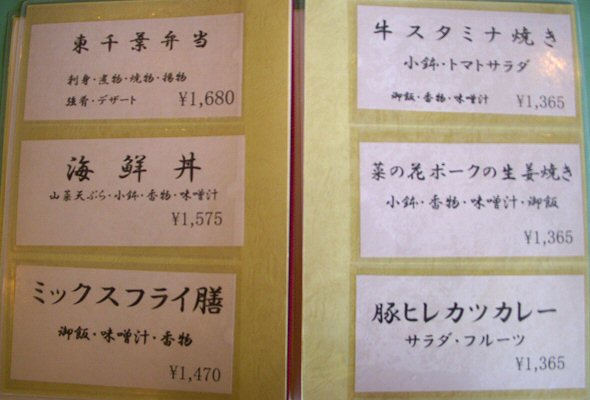 東千葉弁当
刺身・煮物・焼物・揚物
強肴・デザート ¥1,680
海鮮丼
山菜天ぷら・小鉢・香物・味噌汁
¥1,575
ミックスフライ膳
御飯・味噌汁・香物
¥1,470
牛スタミナ焼き
小鉢・トマトサラダ
御飯・香物・味噌汁 ¥1,365
菜の花ポークの生姜焼き
小鉢・香物・味噌汁・御飯
¥1,365
豚ヒレカツカレー
サラダ・フルーツ
¥1,365